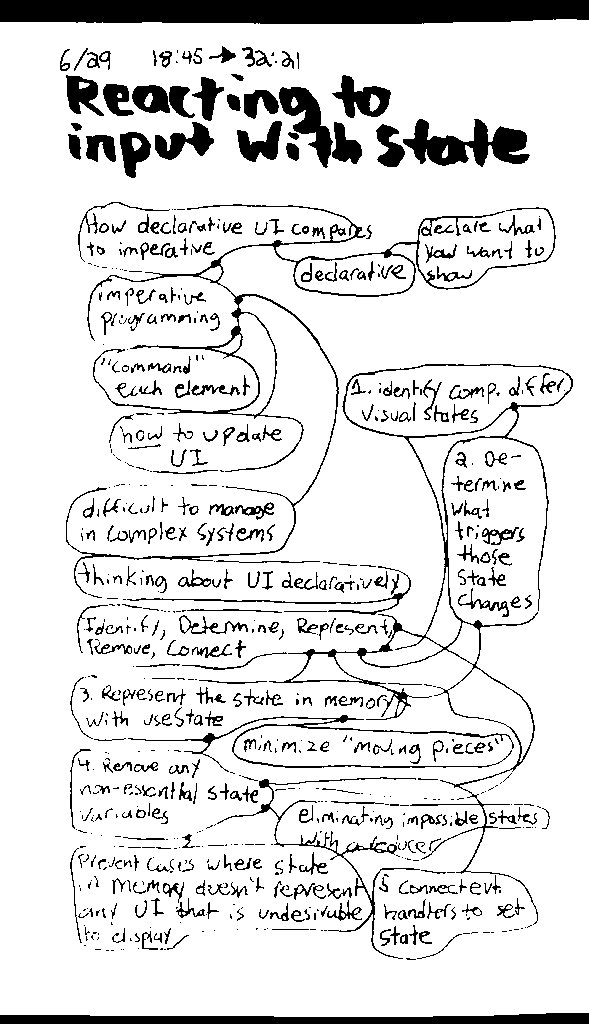 6/29 18:45 → 32:21
Reacting to
input with State
How declarative UI compares
to imperative
declarative
declare what
you want to
show
imperative
programming
"Command"
each element
how to update
UI
difficult to manage
in complex systems
thinking about UI declaratively
Identify, Determine, Represent,
Remove, Connect
1. identify comp. differ
visual states
2. De-
termine
what
triggers
those
state
changes
3. Represent the state in memory
with useState
minimize "moving pieces"
4. Remove any
non-essential state
variables
eliminating impossible states
with a reducer
Prevent cases where state
in memory doesn't represent
any UI that is undesirable
to display
5 Connect evt.
handlers to set
state